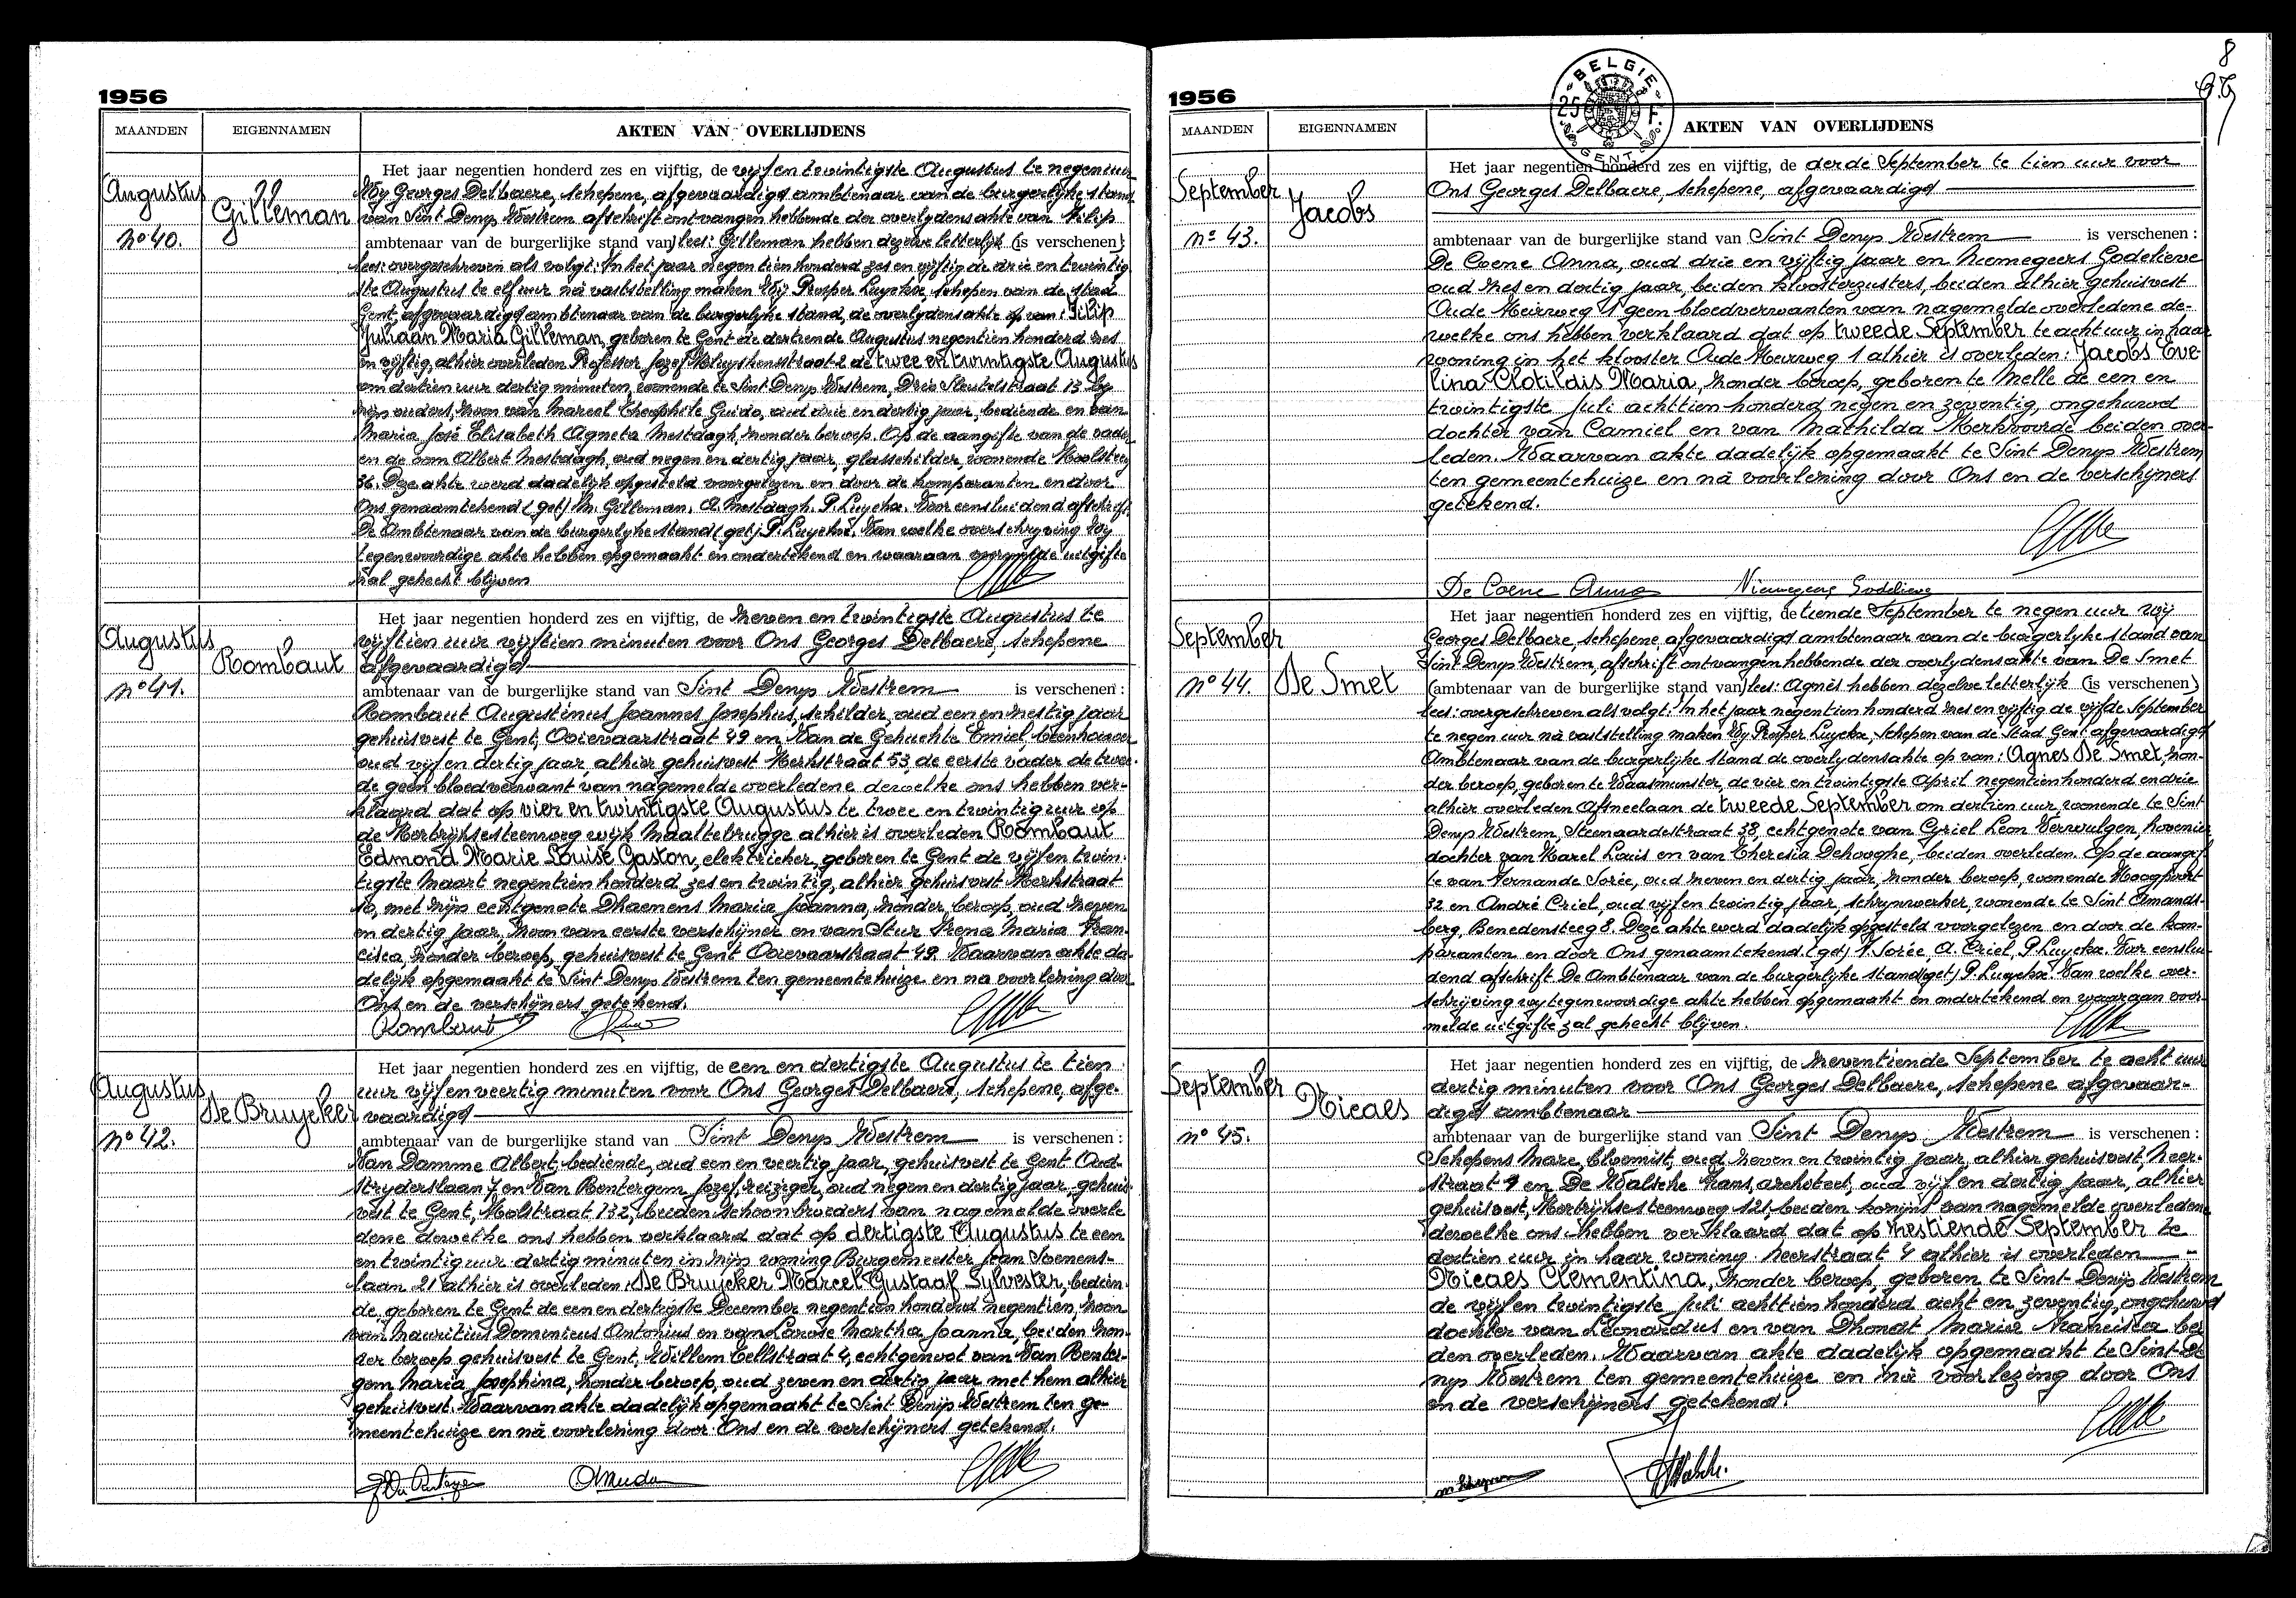 1956
MAANDEN
EIGENNAMEN
AKTEN VAN OVERLIJDENS
Augustus
Gilleman
No 40.
Het jaar negentien honderd zes en vijftig, de vijf en twintigste Augustus te negen uur
Wij Georges Delbaere, schepene, afgevaardigd ambtenaar van de burgerlijke stand
van Sint Denys Westrem afschrift ontvangen hebbende der overlydensakte van Filip
ambtenaar van de burgerlijke stand van) lees: Gilleman hebben dezelve letterlijk (is verschenen)
lees: overgeschreven als volgt: In het jaar negentien honderd zes en vijftig de drie en twintig
ste Augustus te elf uur nà vaststelling maken Wij Prosper Luyckx, schepen van de stad
Gent, afgevaardigd ambtenaar van de burgerlyke stand, de overlydensakte op van: Filip
Juliaan Maria Gilleman, geboren te Gent de dertiende Augustus negentien honderd zes
en vijftig, alhier overleden Professor Jozef Kluyskensstraat 2 de twee en twintigste Augustus
om dertien uur dertig minuten, wonende te Sint Denys Westrem, Drie Sleutelstraat 13 by
zijn ouders, zoon van Marcel Theophile Guido, oud drie en dertig jaar, bediende en van
Maria José Elisabeth Agneta Mestdagh, zonder beroep. Op de aangifte van de vader
en de oom Albert Mestdagh, oud negen en dertig jaar, glasschilder, wonende Koolsteeg
36. Deze akte werd dadelijk opgesteld voorgelezen en door de komparanten en door
Ons genaamtekend (get) M. Gilleman. A. Mestdagh. P. Luyckx. Voor eensluidend afschrift.
De Ambtenaar van de burgerlyke stand (get) P. Luyckx. Van welke overschryving Wy
tegenwoordige akte hebben opgemaakt en ondertekend en waaraan vormelde uitgifte
zal gehecht blijven
Augustus
Rombaut
No 41.
Het jaar negentien honderd zes en vijftig, de zeven en twintigste Augustus te
vijftien uur vijftien minuten voor Ons Georges Delbaere, schepene
afgevaardigd
ambtenaar van de burgerlijke stand van Sint Denys Westrem is verschenen:
Rombaut Augustinus Joannes Josephus, schilder, oud een en zestig jaar
gehuisvest te Gent, Ooievaarstraat 49 en Van de Gehuchte Emiel, beenhouwer
oud vijf en dertig jaar, alhier gehuisvest Kerkstraat 53, de eerste vader de twee-
de geen bloedverwant van nagemelde overledene dewelke ons hebben ver-
klaard dat op vier en twintigste Augustus te twee en twintig uur op
de Kortrijksesteenweg wijk Maaltebrugge alhier is overleden Rombaut
Edmond Marie Louise Gaston, elektrieker, geboren te Gent de vijf en twin-
tigste Maart negentien honderd zes en twintig, alhier gehuisvest Kerkstraat
10, met zijn echtgenote Dhaenens Maria Joanna, zonder beroep, oud zeven
en dertig jaar, zoon van eerste verschijner en van Stur Irena Maria Fran-
cisca, zonder beroep, gehuisvest te Gent Ooievaarstraat 49. Waarvan akte da-
delijk opgemaakt te Sint Denys Westrem ten gemeentehuize en na voorlezing door
Ons en de verschijners getekend.
Rombaut
Augustus
De Bruycker
No 42.
Het jaar negentien honderd zes en vijftig, de een en dertigste Augustus te tien
uur vijf en veertig minuten voor Ons Georges Delbaere, schepene, afge-
vaardigd
ambtenaar van de burgerlijke stand van Sint Denys Westrem is verschenen:
Van Damme Albert, bediende, oud een en veertig jaar, gehuisvest te Gent Oud-
strydersslaan 7, en Van Rentergem Jozef, reiziger, oud negen en dertig jaar, gehuis-
vest te Gent, Molstraat 132, beiden schoonbroeders van nagemelde overle
dene dewelke ons hebben verklaard dat op dertigste Augustus te een
en twintig uur dertig minuten in zijn woning Burgemeester Jean Soenens-
laan 21 alhier is overleden: De Bruycker Marcel Gustaaf Sylvester, bedien-
de, geboren te Gent de een en dertigste December negentien honderd negentien, zoon
van Mauritius Dominicus Antonius en van Larose Martha Joanna, beiden zon-
der beroep gehuisvest te Gent, Willem Tellstraat 4, echtgenoot van Van Renter-
gem Maria Josephina, zonder beroep, oud zeven en dertig jaar met hem alhier
gehuisvest. Waarvan akte dadelijk opgemaakt te Sint Denijs Westrem ten ge-
meentehuize en nà voorlezing door Ons en de verschijners getekend.
1956
BELGIE
25 F.
GENT
8
MAANDEN
EIGENNAMEN
AKTEN VAN OVERLIJDENS
September
Jacobs
No 43.
Het jaar negentien honderd zes en vijftig, de derde September te tien uur voor
Ons Georges Delbaere, schepene, afgevaardigd
ambtenaar van de burgerlijke stand van Sint Denys Westrem is verschenen:
De Coene Anna, oud drie en vijftig jaar en Niemegeers Godelieve
oud zes en dertig jaar, beiden kloosterzusters, beiden alhier gehuisvest
Oude Heirweg 1 geen bloedverwanten van nagemelde overledene de-
welke ons hebben verklaard dat op tweede September te acht uur in haar
woning in het klooster Oude Heirweg 1 alhier is overleden: Jacobs Eve
lina Clotildis Maria, zonder beroep, geboren te Melle de een en
twintigste Juli achttien honderd negen en zeventig, ongehuwd
dochter van Camiel en van Mathilda Kerkvoorde beiden over-
leden. Waarvan akte dadelijk opgemaakt te Sint Denys Westrem
ten gemeentehuize en nà voorlezing door Ons en de verschijners
getekend.
De Coene Anna Niemegeers Godelieve
September
De Smet
No 44.
Het jaar negentien honderd zes en vijftig, de tiende September te negen uur wij
Georges Delbaere, schepene, afgevaardigd ambtenaar van de burgerlyke stand van
Sint Denys Westrem, afschrift ontvangen hebbende der overlydensakte van De Smet
(ambtenaar van de burgerlijke stand van) lees: Agnès hebben dezelve letterlijk (is verschenen)
lees: overgeschreven als volgt: In het jaar negentien honderd zes en vijftig de vijfde September
te negen uur nà vaststelling maken Wy Prosper Luyckx, Schepen van de Stad Gent afgevaardigd
Ambtenaar van de burgerlyke stand de overlydensakte op van: Agnes De Smet, zon-
der beroep, geboren te Waasmunster, de vier en twintigste April negentien honderd en drie
alhier overleden Afsneelaan de tweede September om dertien uur, wonende te Sint
Denys Westrem, Steenaardestraat 38, echtgenote van Cyriel Leon Vervulgen, hovenier
dochter van Karel Louis en van Theresia Dehooghe, beiden overleden. Op de aangif
te van Fernande Sorée, oud zeven en dertig jaar, zonder beroep, wonende Hoogpoort
32 en André Criel, oud vijf en twintig jaar, schrynwerker, wonende te Sint Amands-
berg, Benedensteeg 8. Deze akte werd dadelijk opgesteld voorgelezen en door de kom-
paranten en door Ons genaamtekend. (get) F. Sorée, A. Criel, P. Luyckx. Voor eenslui-
dend afschrift De Ambtenaar van de burgerlyke stand (get) P. Luyckx. Van welke over-
schrijving wy tegenwoordige akte hebben opgemaakt en ondertekend en waaraan voor-
melde uitgifte zal gehecht blijven.
September
Nicaes
No 45.
Het jaar negentien honderd zes en vijftig, de zeventiende September te acht uur
dertig minuten voor Ons Georges Delbaere, schepene afgevaar-
digd ambtenaar
ambtenaar van de burgerlijke stand van Sint Denys Westrem is verschenen:
Schepens Marc, bloemist, oud zeven en twintig jaar, alhier gehuisvest, Neer-
straat 4 en De Walsche Frans, architect, oud vijf en dertig jaar, alhier
gehuisvest, Kortrijksesteenweg 121, beiden kozijns van nagemelde overledene
dewelke ons hebben verklaard dat op zestiende September te
dertien uur in haar woning Neerstraat 4 alhier is overleden
Nicaes Clementina, zonder beroep, geboren te Sint Denijs Westrem
de vijf en twintigste Juli achttien honderd acht en zeventig, ongehuwd
dochter van Leonardus en van Dhondt Maria Francisca bei
den overleden. Waarvan akte dadelijk opgemaakt te Sint De
nys Westrem ten gemeentehuize en nà voorlezing door Ons
en de verschijners getekend.